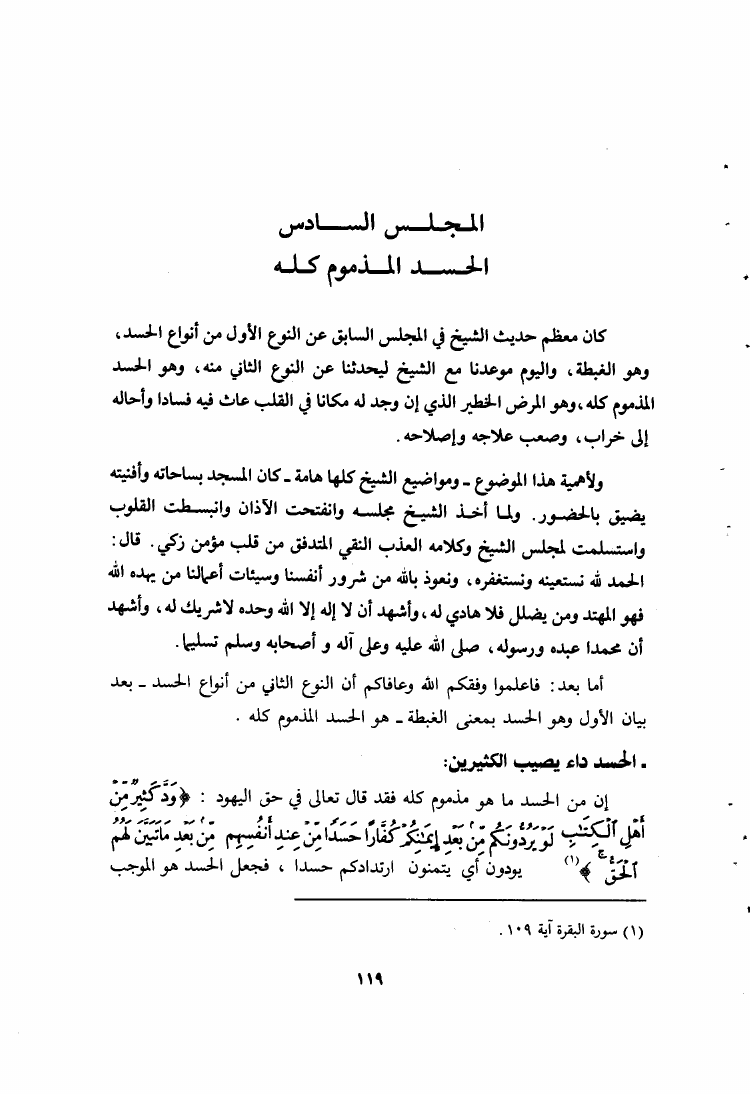 المجلس السادس
الحسد المذموم كله
كان معظم حديث الشيخ في المجلس السابق عن النوع الأول من أنواع الحسد،
وهو الغبطة، واليوم موعدنا مع الشيخ ليحدثنا عن النوع الثاني منه، وهو الحسد
المذموم كله، وهو المرض الخطير الذي إن وجد له مكانا في القلب عاث فيه فسادا وأحاله
إلى خراب، وصعب علاجه وإصلاحه.
ولأهمية هذا الموضوع ـ ومواضيع الشيخ كلها هامة ـ كان المسجد بساحاته وأفنيته
يضيق بالحضور. ولما أخذ الشيخ مجلسه وانفتحت الآذان وانبسطت القلوب
واستسلمت لمجلس الشيخ وكلامه العذب النقي المتدفق من قلب مؤمن زكي. قال:
الحمد لله نستعينه ونستغفره، ونعوذ بالله من شرور أنفسنا وسيئات أعمالنا من يهده الله
فهو المهتد ومن يضلل فلا هادي له، وأشهد أن لا إله إلا الله وحده لاشريك له، وأشهد
أن محمدا عبده ورسوله، صلى الله عليه وعلى آله و أصحابه وسلم تسليما.
أما بعد: فاعلموا وفقكم الله وعافاكم أن النوع الثاني من أنواع الحسد ـ بعد
بيان الأول وهو الحسد بمعنى الغبطة ـ هو الحسد المذموم كله .
. الحسد داء يصيب الكثيرين:
إن من الحسد ما هو مذموم كله فقد قال تعالى في حق اليهود : ﴿وَدَّ كَثِيرٌ مِّنْ
أَهْلِ ٱلْكِتَٰبِ لَوْ يَرُدُّونَكُم مِّنۢ بَعْدِ إِيمَٰنِكُمْ كُفَّارًا حَسَدًا مِّنْ عِندِ أَنفُسِهِم مِّنۢ بَعْدِ مَا تَبَيَّنَ لَهُمُ
ٱلْحَقُّ ۖ﴾ (١) يودون أي يتمنون ارتدادكم حسدا ، فجعل الحسد هو الموجب
(١) سورة البقرة آية ١٠٩ .
١١٩